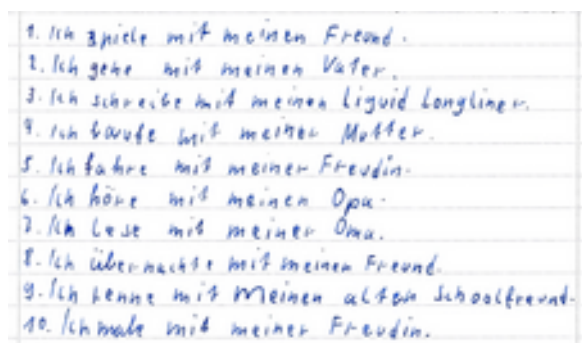 1. Ich spiele mit meinen Freund.
2. Ich gehe mit meinen Vater.
3. Ich schreibe mit meinen Liquid Longliner.
4. Ich laufe mit meiner Mutter.
5. Ich fahre mit meiner Freudin.
6. Ich höre mit meinen Opa.
7. Ich Lese mit meiner Oma.
8. Ich übernachte mit meinen Freund.
9. Ich renne mit meinen alten Schoolfreund.
10. Ich male mit meiner Freudin.